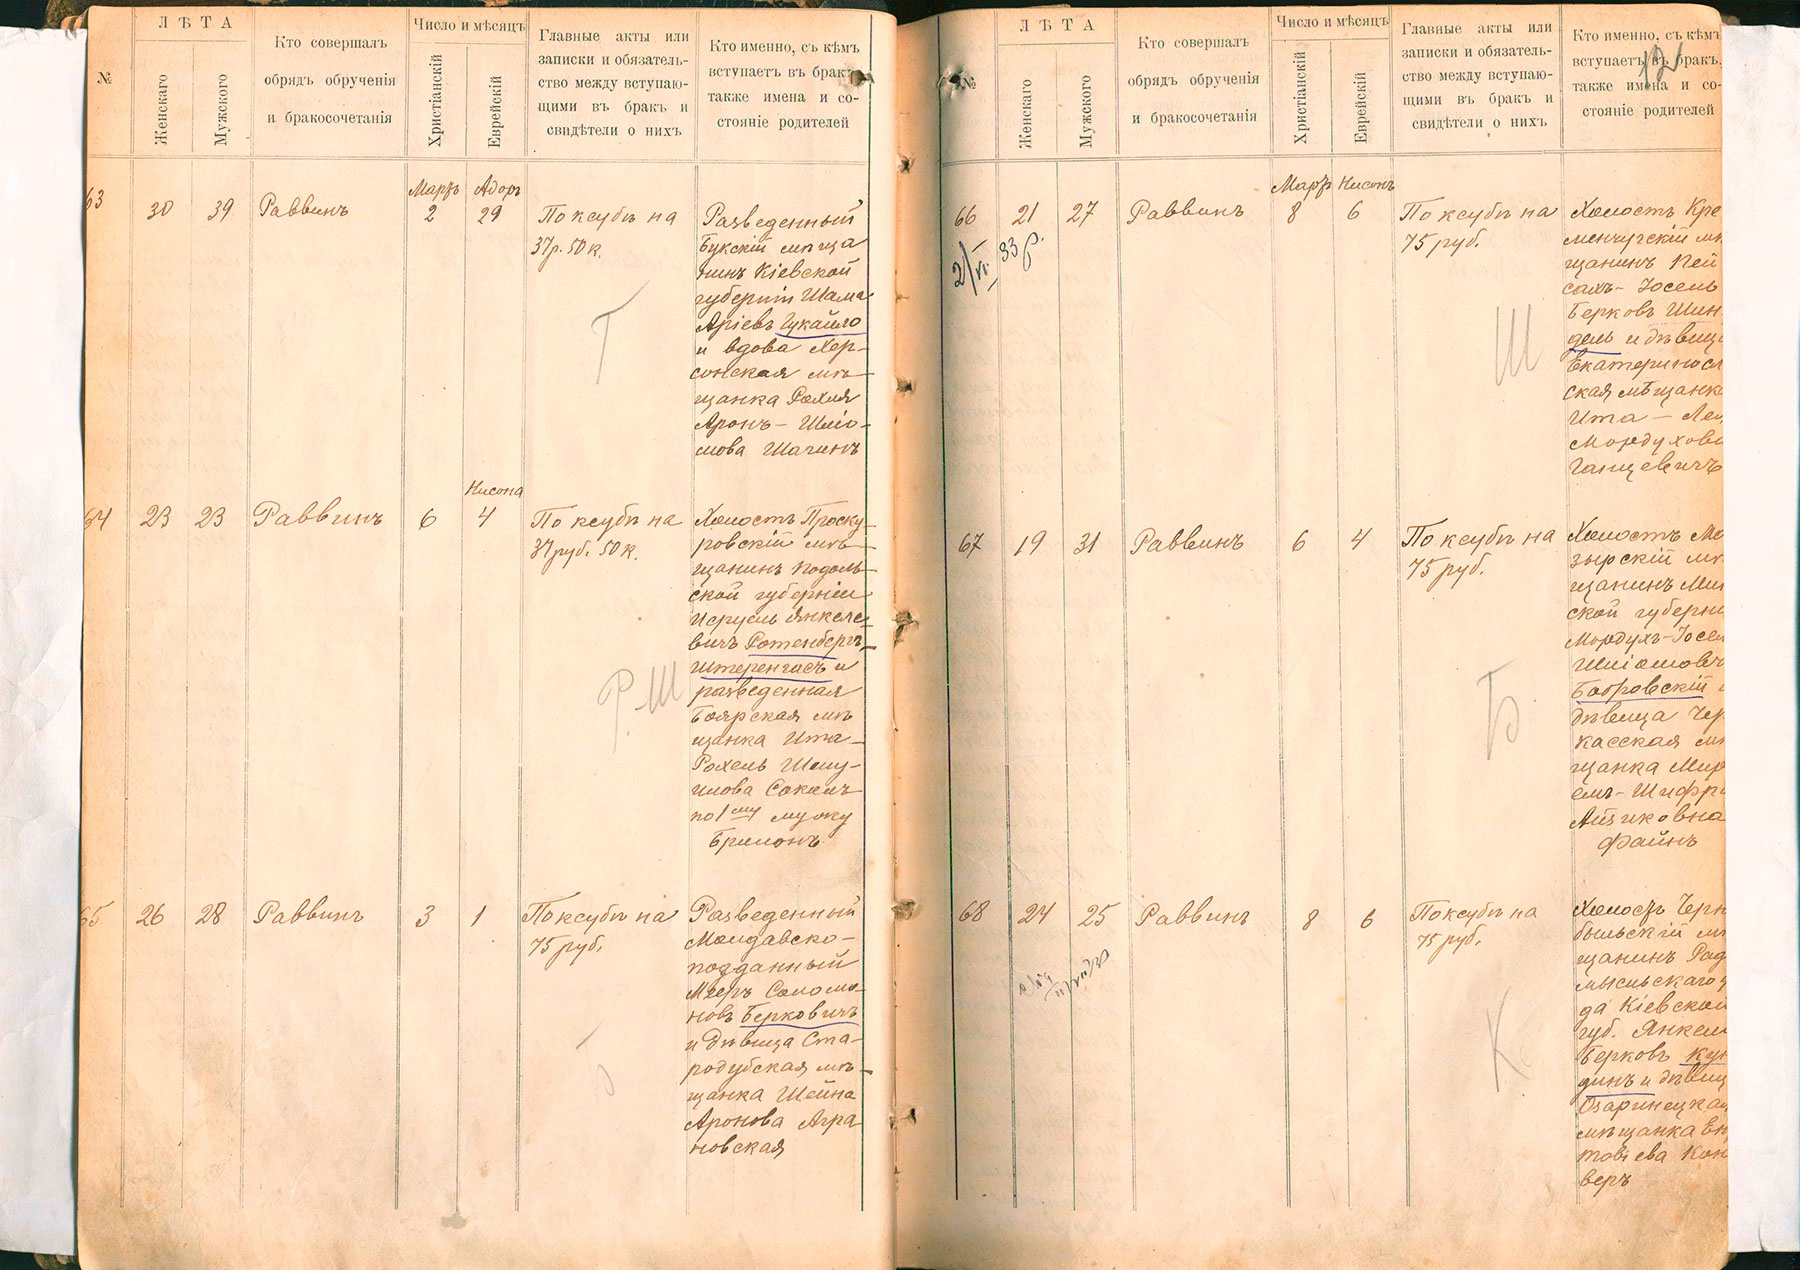 №
ЛѢТА
Женскаго
Мужского
Кто совершалъ
обрядъ обрученія
и бракосочетанія
Число и мѣсяцъ
Христіанскій
Еврейскій
Главные акты или
записки и обязатель-
ство между вступаю-
щими въ бракъ и
свидѣтели о нихъ
Кто именно, съ кѣмъ
вступаетъ въ бракъ,
также имена и со-
стояніе родителей
63
30
39
Раввинъ
Мартъ
2
Адоръ
29
По ксубѣ на
37р. 50 к.
Г
Разведенный
Букскій мѣща
нинъ Кіевской
губерніи Шама
Аріевъ Гукайло
и вдова Хер-
сонская мѣ-
щанка Рахиля
Аронъ-Шлiо-
мова Шагинъ
64
23
23
Раввинъ
6
Нисона
4
По ксубѣ на
37 руб. 50 к.
Р.Ш
Холостъ Проску-
ровскій мѣ-
щанинъ Подоль-
ской губерніи
Исруль Янкеле-
вичъ Ротенбергъ-
Штеренгасъ и
разведенная
Боярская мѣ
щанка Ита-
Рохель Шму-
илова Соколъ
по 1му мужу
Бримонъ
65
26
28
Раввинъ
3
1
По ксубѣ на
75 руб.
Б
Разведенный
Молдавско-
подданный
Мееръ Соломо-
новъ Берковичъ
и дѣвица Ста-
родубская мѣ-
щанка Шейна
Аронова Агра
новская
№
ЛѢТА
Женскаго
Мужского
Кто совершалъ
обрядъ обрученія
и бракосочетанія
Число и мѣсяцъ
Христіанскій
Еврейскій
Главные акты или
записки и обязатель-
ство между вступаю-
щими въ бракъ и
свидѣтели о нихъ
Кто именно, съ кѣмъ
вступаетъ въ бракъ,
также имена и со-
стояніе родителей
66
21
27
Раввинъ
Мартъ
8
Нисонъ
6
По ксубѣ на
75 руб.
2/VI 33 р.
Ш
Холостъ Кре
менчугскій мѣ
щанинъ Пей
сахъ-Іосель
Берковъ Шин
дель и дѣвица
Екатериносл
ская мѣщанка
Ита-Лея
Мордухова
Ганцевичъ
67
19
31
Раввинъ
6
4
По ксубѣ на
75 руб.
Б
Холостъ Мо
зырскій мѣ
щанинъ Мин
ской губерніи
Мордухъ-Іосел
Шліомовъ
Бобровскій и
дѣвица Чер
касская мѣ
щанка Мир
емъ-Шифра
Айзиковна
Файнъ
68
24
25
Раввинъ
8
6
По ксубѣ на
75 руб.
К
Холостъ Черно
быльскій мѣ
щанинъ Радо
мысльскаго у
да Кіевской
губ. Янкель
Берковъ Кун
динъ и дѣвица
Озаринецкая
мѣщанка Ен
товіева Кон
веръ